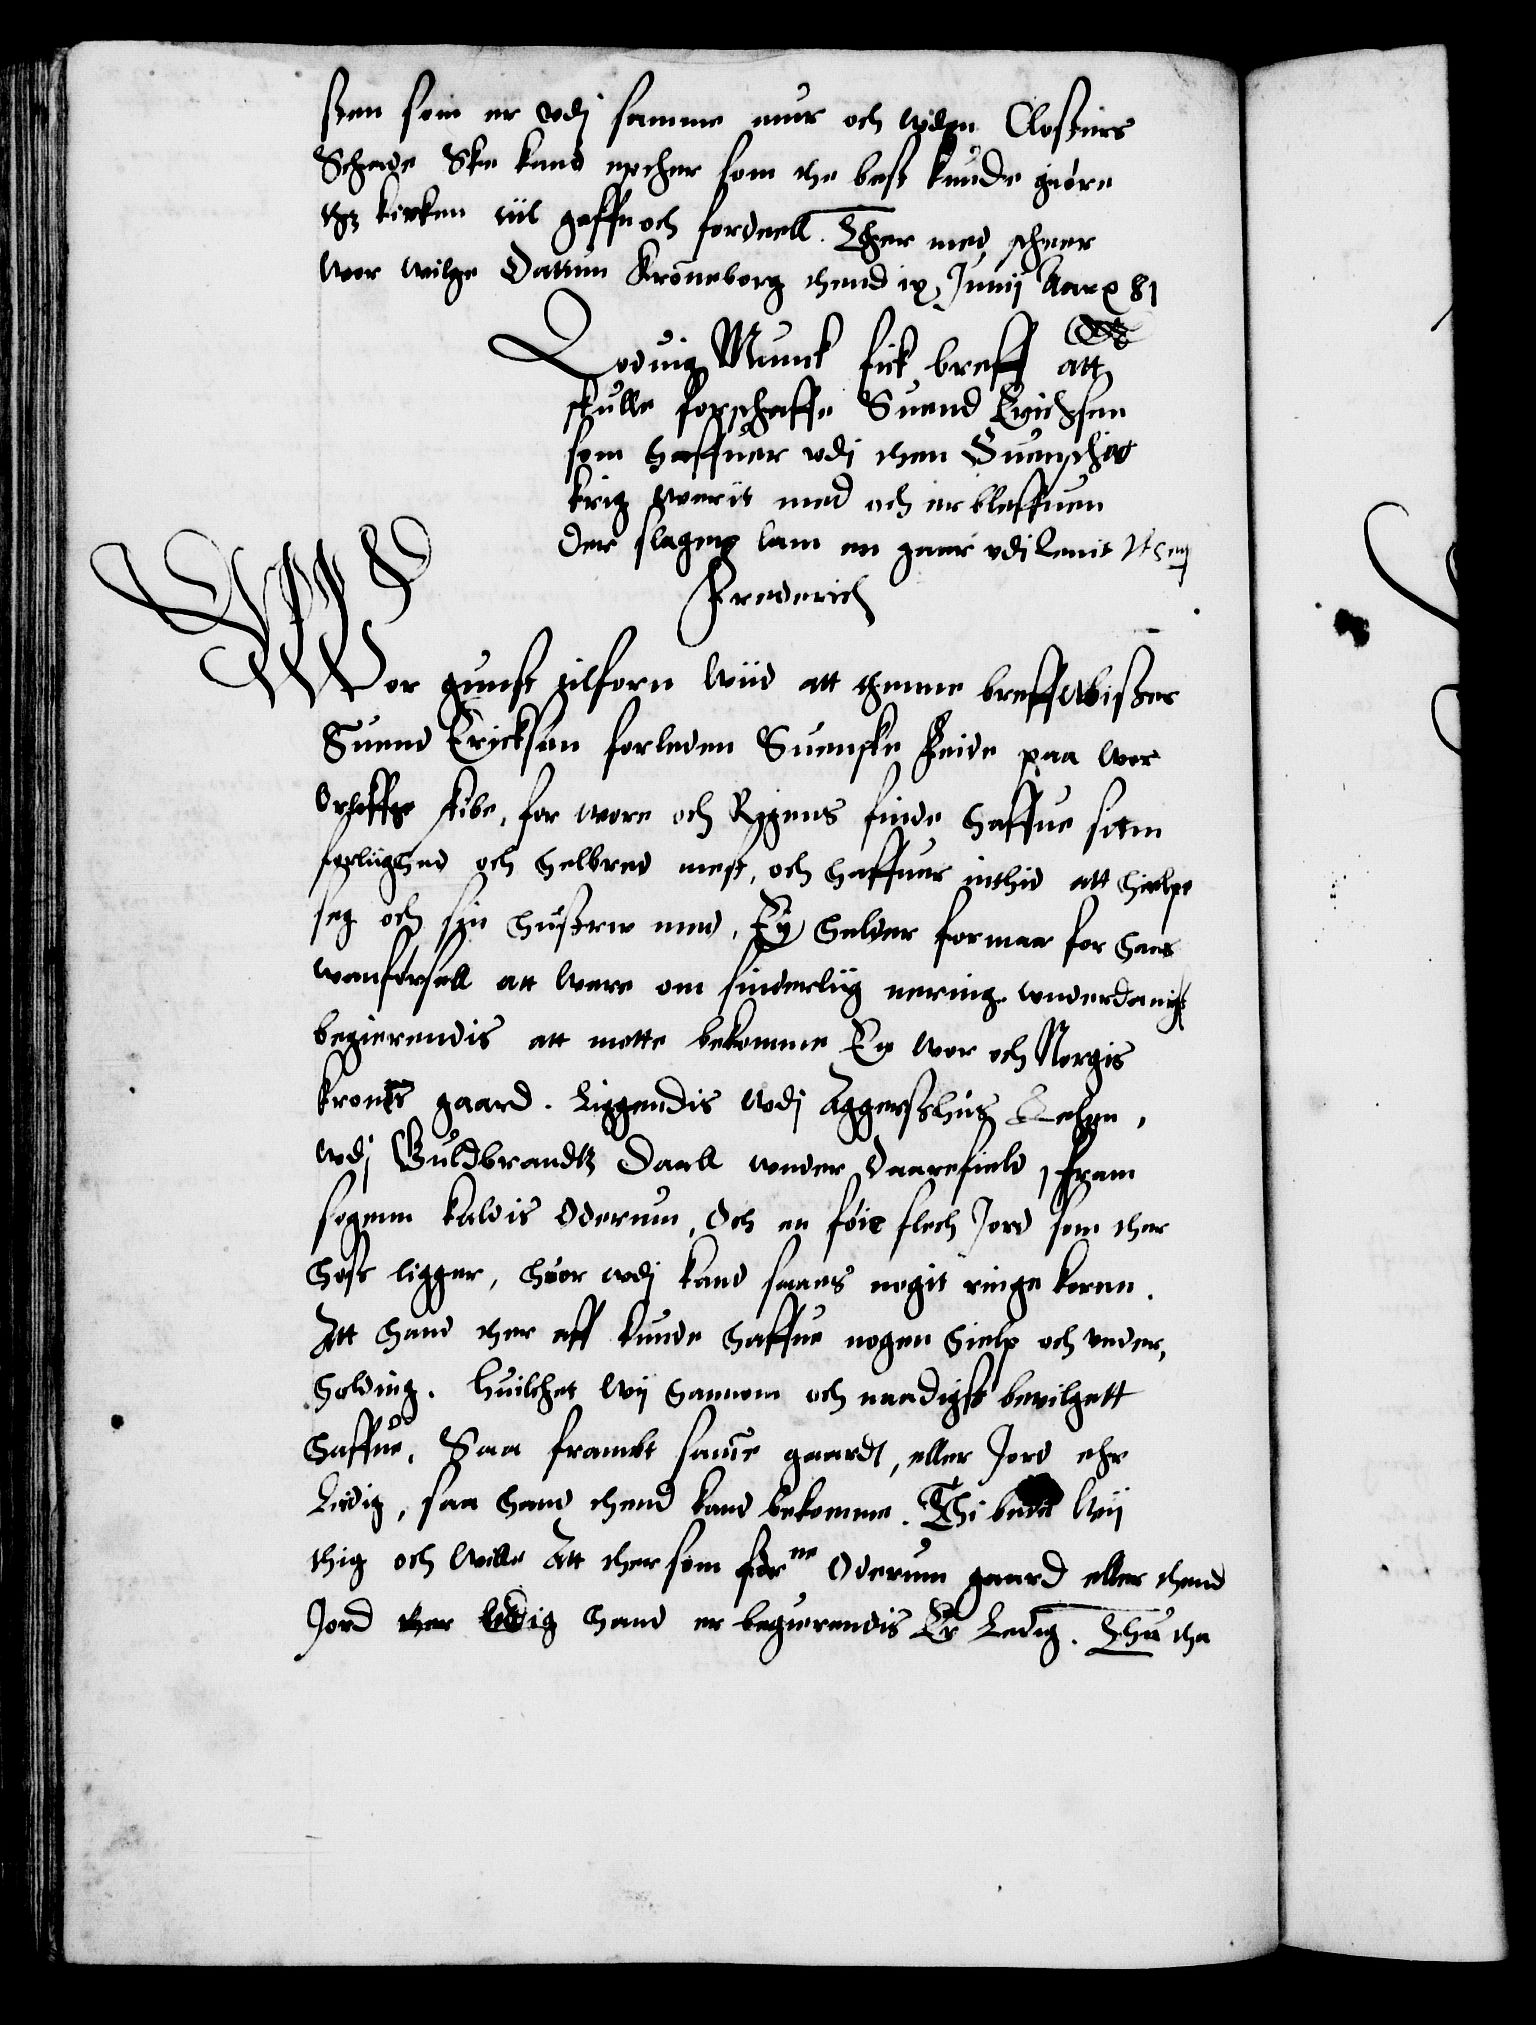 sten som er vdj samme mur och wden Closters
Schade Ske kand epther som the best kunde giøre
thz kircken till gaffn och fordeell. Ther med scheer
wor wilge Dattum Kroneborg thend ix Junij Aar 81
Lodvig Munck fick breff att
skulle forschaffe Suend Erichsen
som haffuer vdj then Suenscher
krig werit med och er bleffuen
der slagen lam en gaar vdi Lenit
Frederich
Wor gunst tilforn Wiid att thenne breffwisszer
Suend Ericksen forleden Suenske Feide paa wor
Orloffs skibe, for wore och Rigens finde haffue sitn
førlighed och helbred mest, och haffuer inthid att hielpe
seg och sin hustrw med, Ey helder formaar for hans
wanførsell att were om sinderlig nering wnderdanigst
begierendis att motte bekomme En wor och Norgis
krones gaard. Liggendis wdj Aggershus Lehn,
wdj Guldbrandtz Daall wnder Daarefield, Fram
sogenn kaldis Oderum, Och en føie flech Jord som ther
hoss ligger, huor wdj kand saaes nogit ringe korn.
Att hand ther aff kunde haffue nogen hielp och vnder,
holding. Huilchet Wij hannom och naadigst bevilgett
haffue. Saa frambt samme gaardt, eller Jord ehr
Ledig, saa hand thend kand bekomme. Thi bede Wij
thig och Wille Att ther som forne Oderum gaard eller thend
Jord hand er begierendis Er Ledig. Thu tha